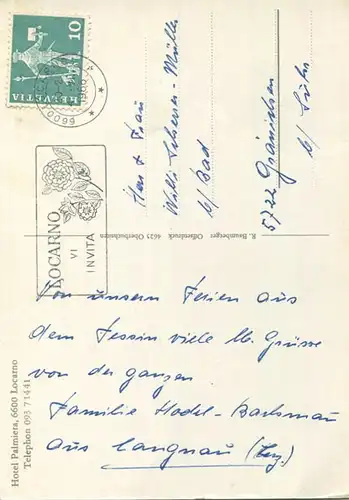 10
HELVETIA
6600
LOCARNO
VI
INVITA
Herr + Frau
Willi Scherrer-Müller
b/ Bad
5722 Gränichen
b/ Suhr
R. Baumberger Offsetdruck 4625 Oberbuchsiten
Von unsern Ferien aus
dem Tessin viele lb. Grüsse
von der ganzen
Familie Hodel-
aus Langnau
Hotel Palmiera, 6600 Locarno
Telephon 093 71441